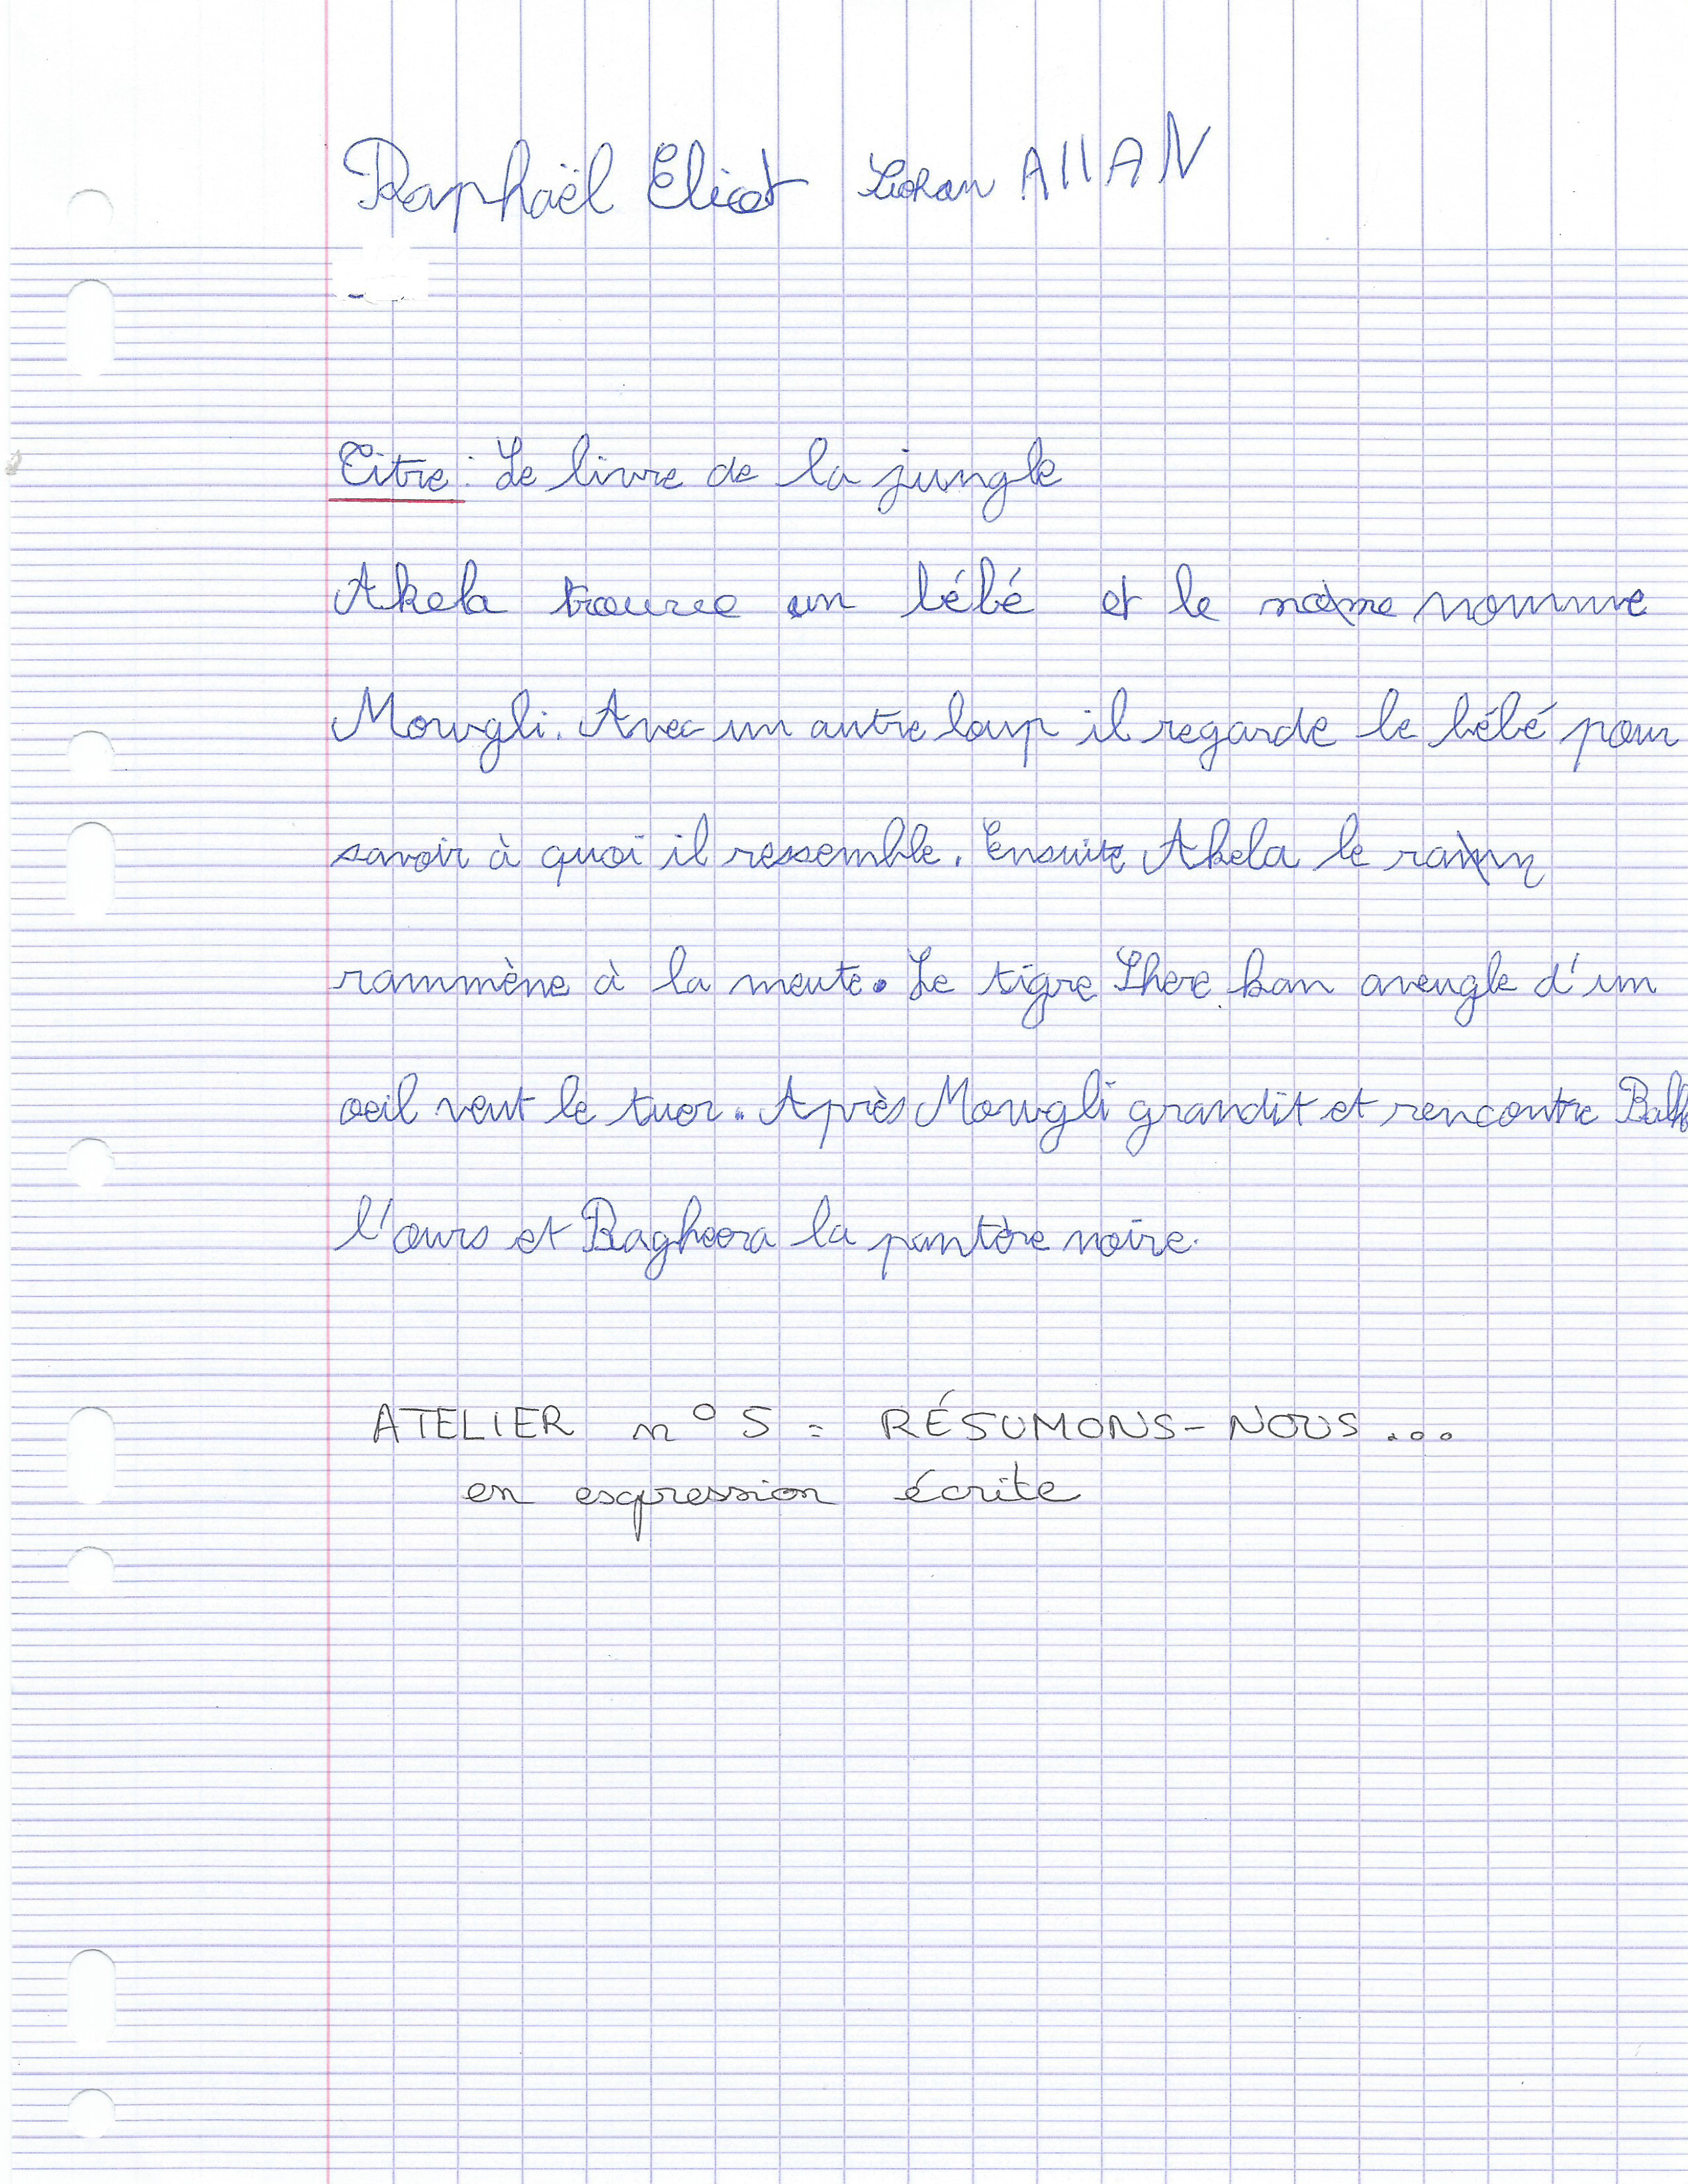 Raphaël Eliot Lohan AllAN
Titre : Le livre de la jungle
Akela trouve un bébé et le nome nomme
Mowgli. Avec un autre loup il regarde le bébé pour
savoir à quoi il ressemble. Ensuite Akela le ramn
rammène à la meute. Le tigre Shere kan aveugle d'un
oeil veut le tuer. Après Mowgli grandit et rencontre
l'ours et Bagheera la pantère noire.
ATELIER n° 5 : RÉSUMONS-NOUS ...
en expression écrite